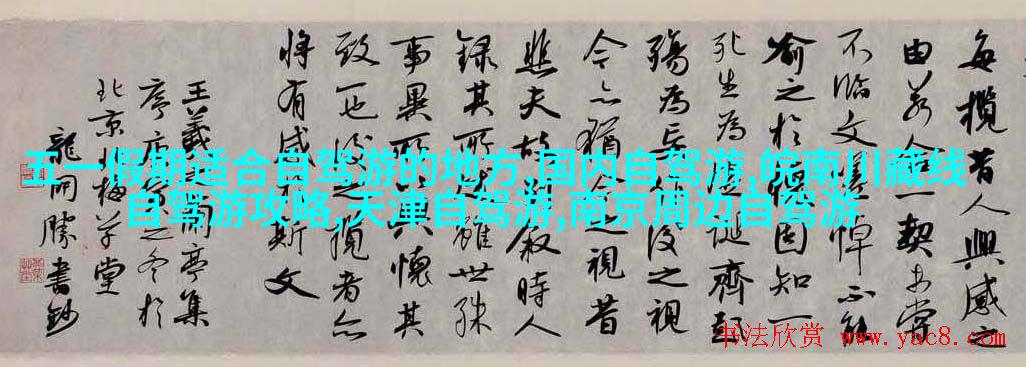 五一假期适合自驾游的地方,国内自驾游,皖南川藏线
自驾游攻略,天津自驾游,南京周边自驾游
每攬昔人興感之
由若合一契未嘗
不臨文嗟悼不能
喻之於懷固知一
死生為虛誕齊彭
殤為妄作後之視
今亦猶今之視昔
悲夫故列敘時人
錄其所述雖世殊
事異所以興懷其
致一也後之視者亦
將有感於斯文
王羲之蘭亭集
序之冬於
北京梅堂
龍開勝書鈔
书法欣赏 www.yac8.com